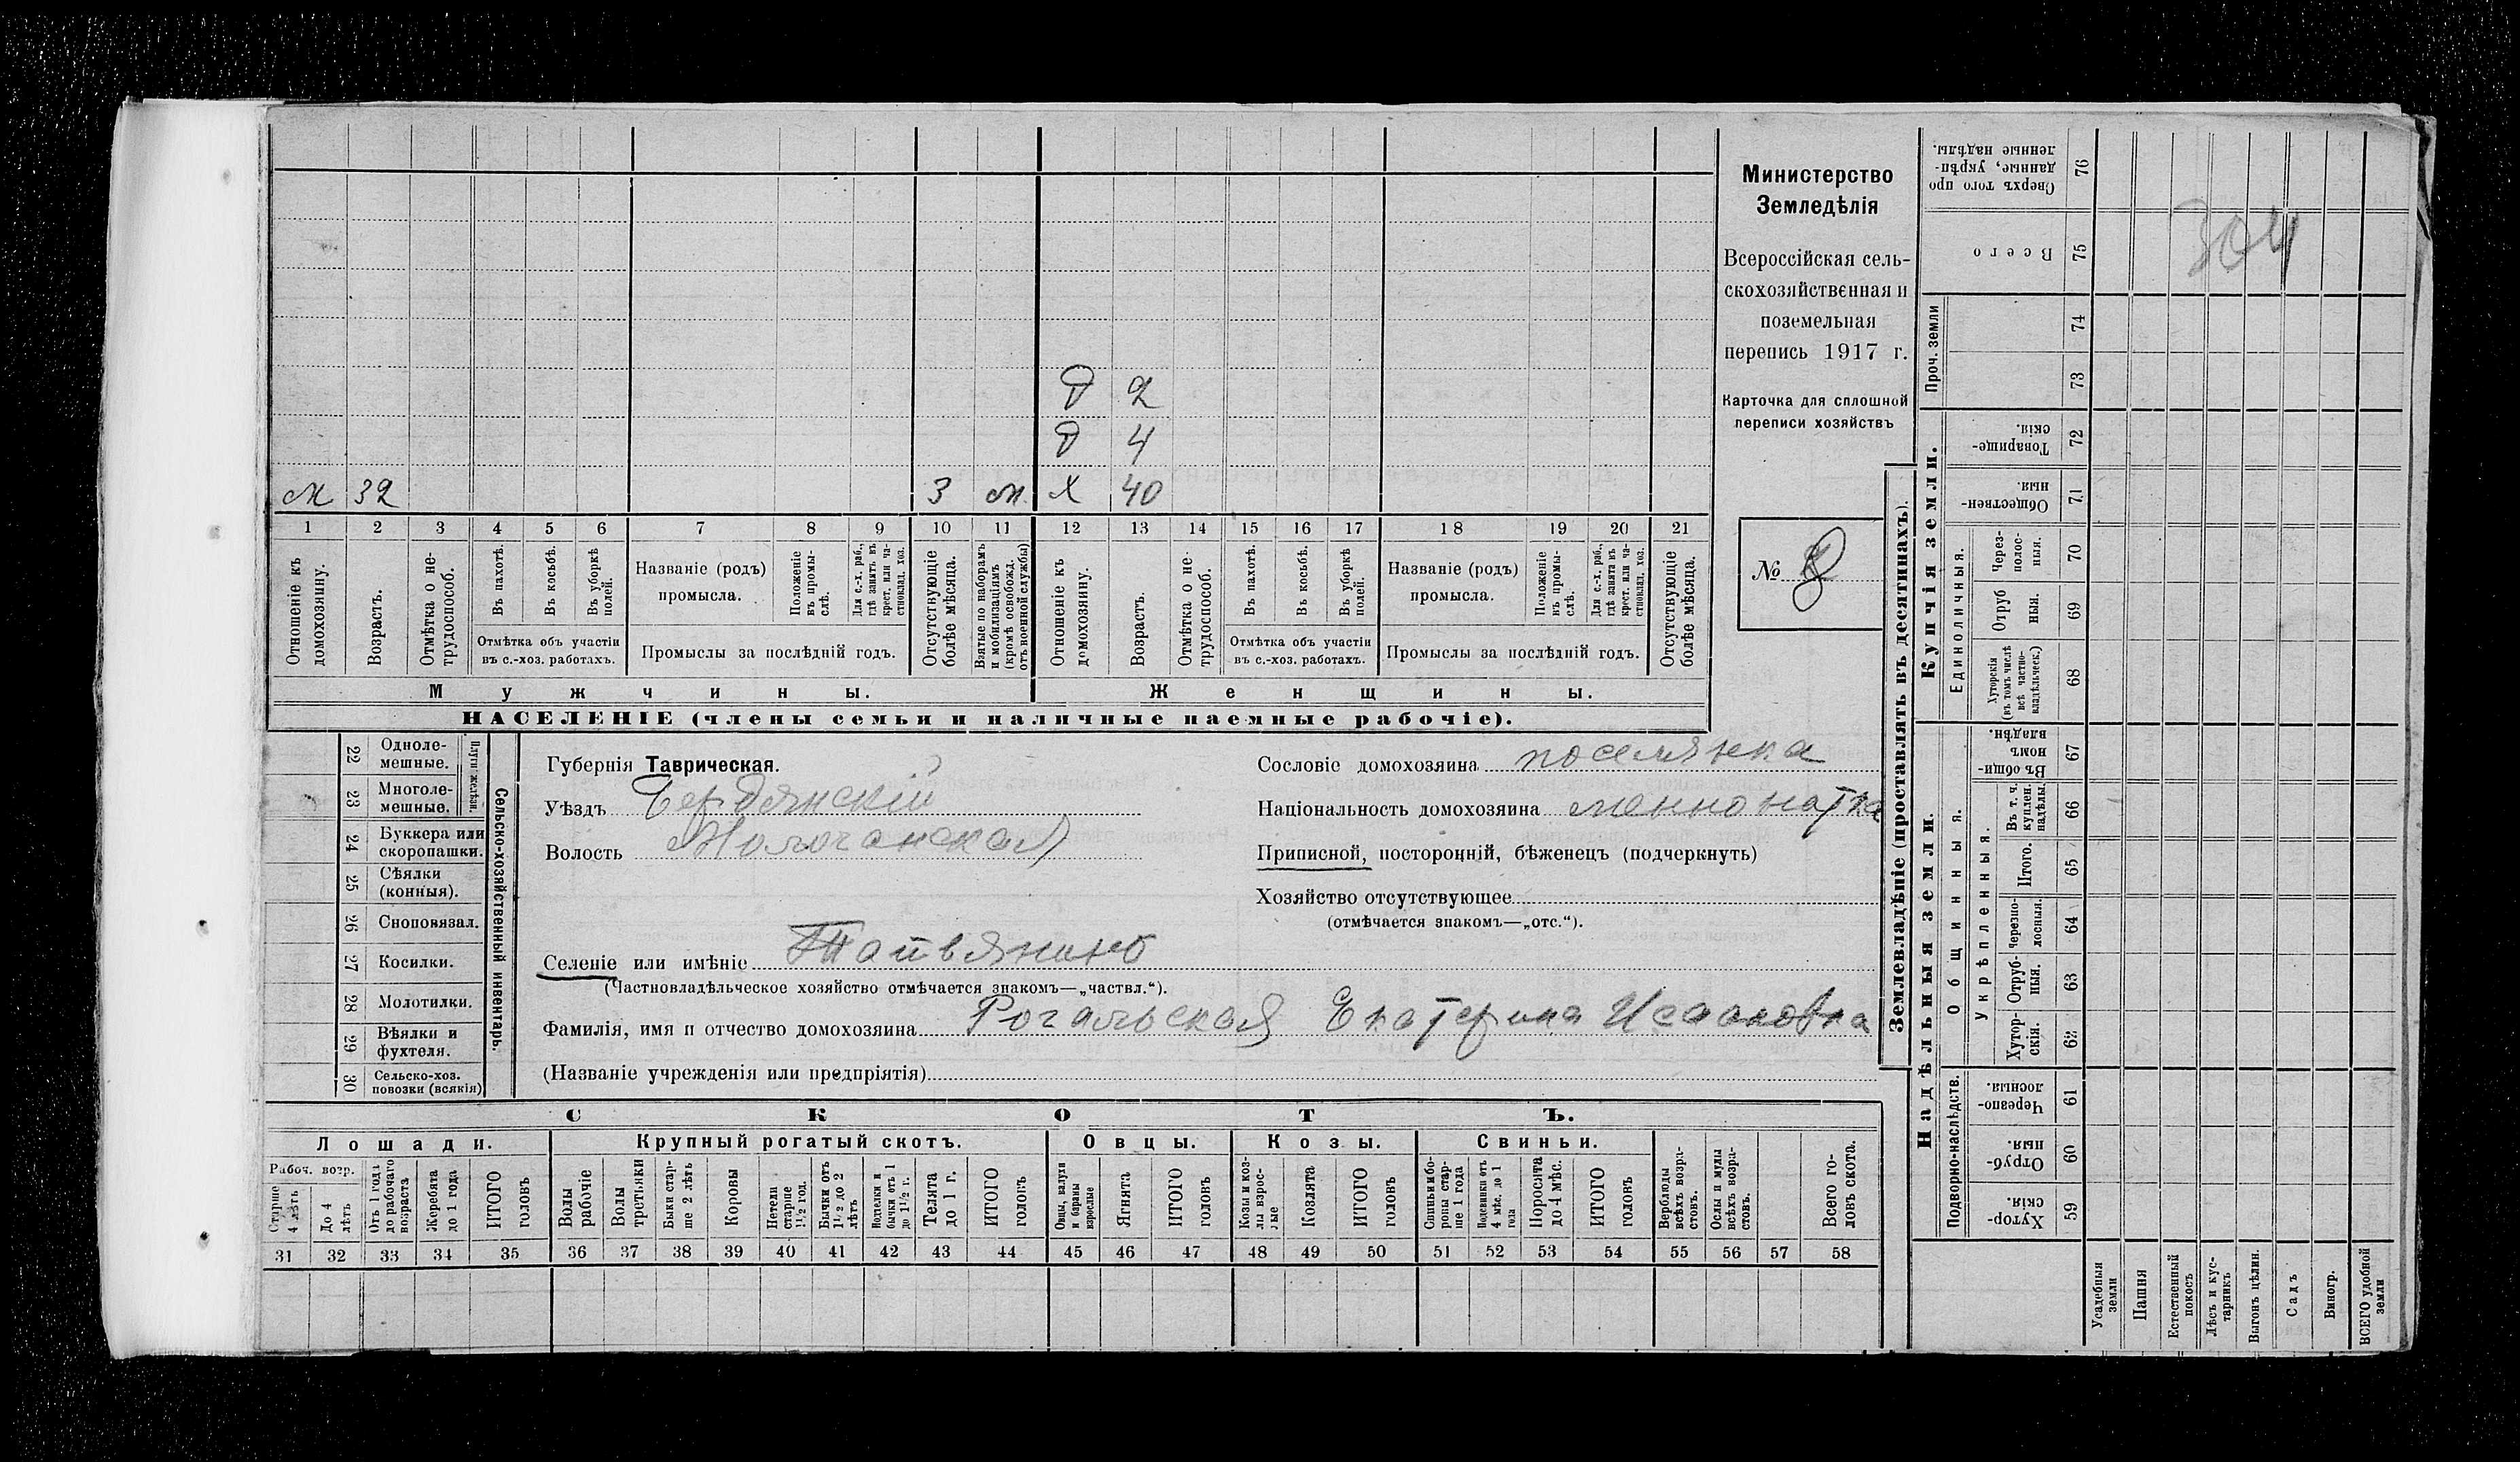 Министерство
Земледѣлія
Всероссійская сель-
скохозяйственная и
поземельная
перепись 1917 г.
Карточка для сплошной
переписи хозяйствъ
№ 8
304
Д 2
Д 4
М 32 3 м. Х 40
1 2 3 4 5 6 7 8 9 10 11 12 13 14 15 16 17 18 19 20 21
Отношеніе къ домохозяину.
Возрастъ.
Отмѣтка о не-трудоспособ.
Въ пахотѣ.
Въ косьбѣ.
Въ уборкѣ полей.
Отмѣтка объ участіи
въ с.-хоз. работахъ.
Названіе (родъ)
промысла.
Положеніе въ промы-слѣ.
Для с.-х. раб., гдѣ занятъ въ крест. или ча-стновлад. хоз.
Промыслы за послѣдній годъ.
Отсутствующіе болѣе мѣсяца.
Взятые по наборамъ и мобилизаціямъ (кромѣ освобожд. отъ военной службы)
Отношеніе къ домохозяину.
Возрастъ.
Отмѣтка о не-трудоспособ.
Въ пахотѣ.
Въ косьбѣ.
Въ уборкѣ полей.
Отмѣтка объ участіи
въ с.-хоз. работахъ.
Названіе (родъ)
промысла.
Положеніе въ промы-слѣ.
Для с.-х. раб., гдѣ занята въ крест. или ча-стновлад. хоз.
Промыслы за послѣдній годъ.
Отсутствующіе болѣе мѣсяца.
Мужчины. Женщины.
НАСЕЛЕНІЕ (члены семьи и наличные наемные рабочіе).
22 Одноле-мешные.
23 Многоле-мешные.
Плуги желѣзн.
24 Буккера или скоропашки.
25 Сѣялки (конныя).
26 Сноповязал.
27 Косилки.
28 Молотилки.
29 Вѣялки и фухтеля.
30 Сельско-хоз. повозки (всякія)
Сельско-хозяйственный инвентарь.
Губернія Таврическая.
Уѣздъ Бердянскій
Волость Молочанская
Селеніе или имѣніе
(Частновладѣльческое хозяйство отмѣчается знакомъ—„частвл.“).
Фамилія, имя и отчество домохозяина Рогальская Екатерина Исааковна
(Названіе учрежденія или предпріятія)
Сословіе домохозяина поселянка
Національность домохозяина менонитка
Приписной, посторонній, бѣженецъ (подчеркнуть)
Хозяйство отсутствующее
(отмѣчается знакомъ—„отс.“).
СКОТЪ.
Лошади. Крупный рогатый скотъ. Овцы. Козы. Свиньи.
Рабоч. возр.
Старше 4 лѣтъ
До 4 лѣтъ
Отъ 1 года до рабочаго возраста
Жеребята до 1 года
ИТОГО головъ
Волы рабочіе
Волы третьяки
Быки стар-ше 2 лѣтъ
Коровы
Нетели старше 1½ год.
Бычки отъ 1½ до 2 лѣтъ
Подтелки и бычки отъ 1 до 1½ г.
Телята до 1 г.
ИТОГО головъ
Овцы, валухи и бараны взрослые
Ягнята
ИТОГО головъ
Козы и коз-лы взрос-лые
Козлята
ИТОГО головъ
Свиньи и бо-ровы стар-ше 1 года
Подсвинки отъ 4 мѣс. до 1 года
Поросята до 4 мѣс.
ИТОГО головъ
Верблюды всѣхъ возра-стовъ.
Ослы и мулы всѣхъ возра-стовъ.
Всего го-ловъ скота.
31 32 33 34 35 36 37 38 39 40 41 42 43 44 45 46 47 48 49 50 51 52 53 54 55 56 57 58
Землевладѣніе (проставлять въ десятинахъ).
Купчія земли.
Надѣльныя земли.
Сверхъ того про-данные, укрѣп-ленные надѣлы. 76
Всего 75
Проч. земли
74
73
Товарище-скія. 72
Обществен-ныя. 71
Единоличныя.
Через-полос-ныя. 70
Отруб-ныя. 69
Хуторскія (въ томъ числѣ всѣ частно-владѣльческ.) 68
Общинныя.
Въ общи-номъ владѣн. 67
Укрѣпленныя.
Въ т. ч. куплен. надѣлы. 66
Итого. 65
Черезпо-лосныя. 64
Отруб-ныя. 63
Хутор-скія. 62
Подворно-наслѣдств.
Черезпо-лосныя. 61
Отруб-ныя. 60
Хутор-скія. 59
Усадебныя земли
Пашня
Естественный покосъ
Лѣсъ и кус-тарникъ
Выгонъ цѣлин.
Садъ
Виногр.
ВСЕГО удобной земли